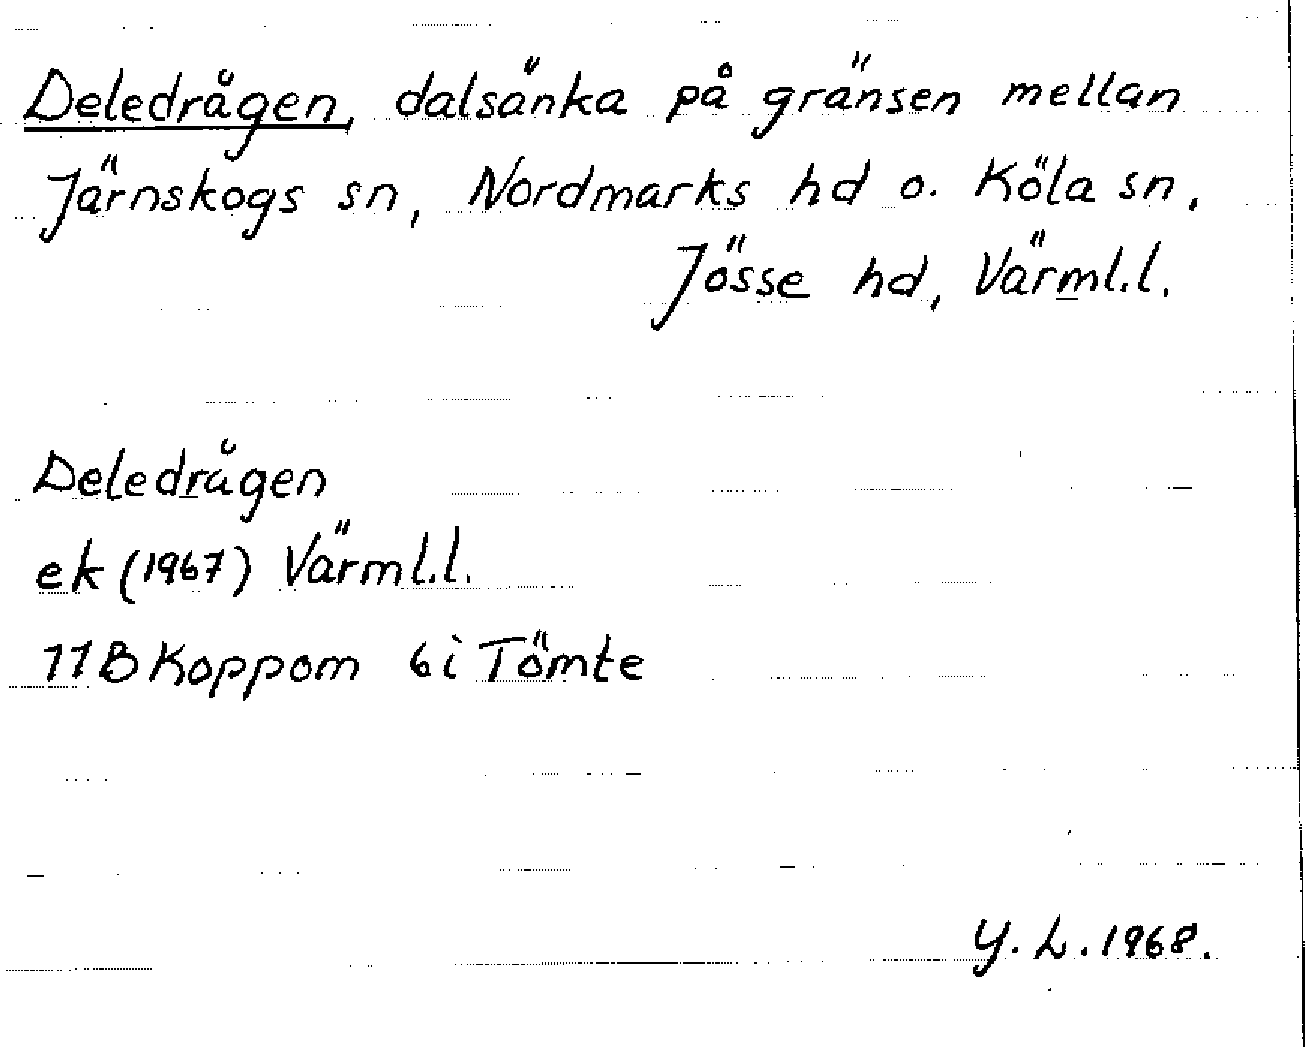 Deledrågen, dalsänka på gränsen mellan
Järnskogs sn, Nordmarks hd o. Köla sn,
Jösse hd, Värml.l.
Deledrågen
ek (1967) Värml.l.
11B Koppom 6i Tömte
Y. L. 1968.